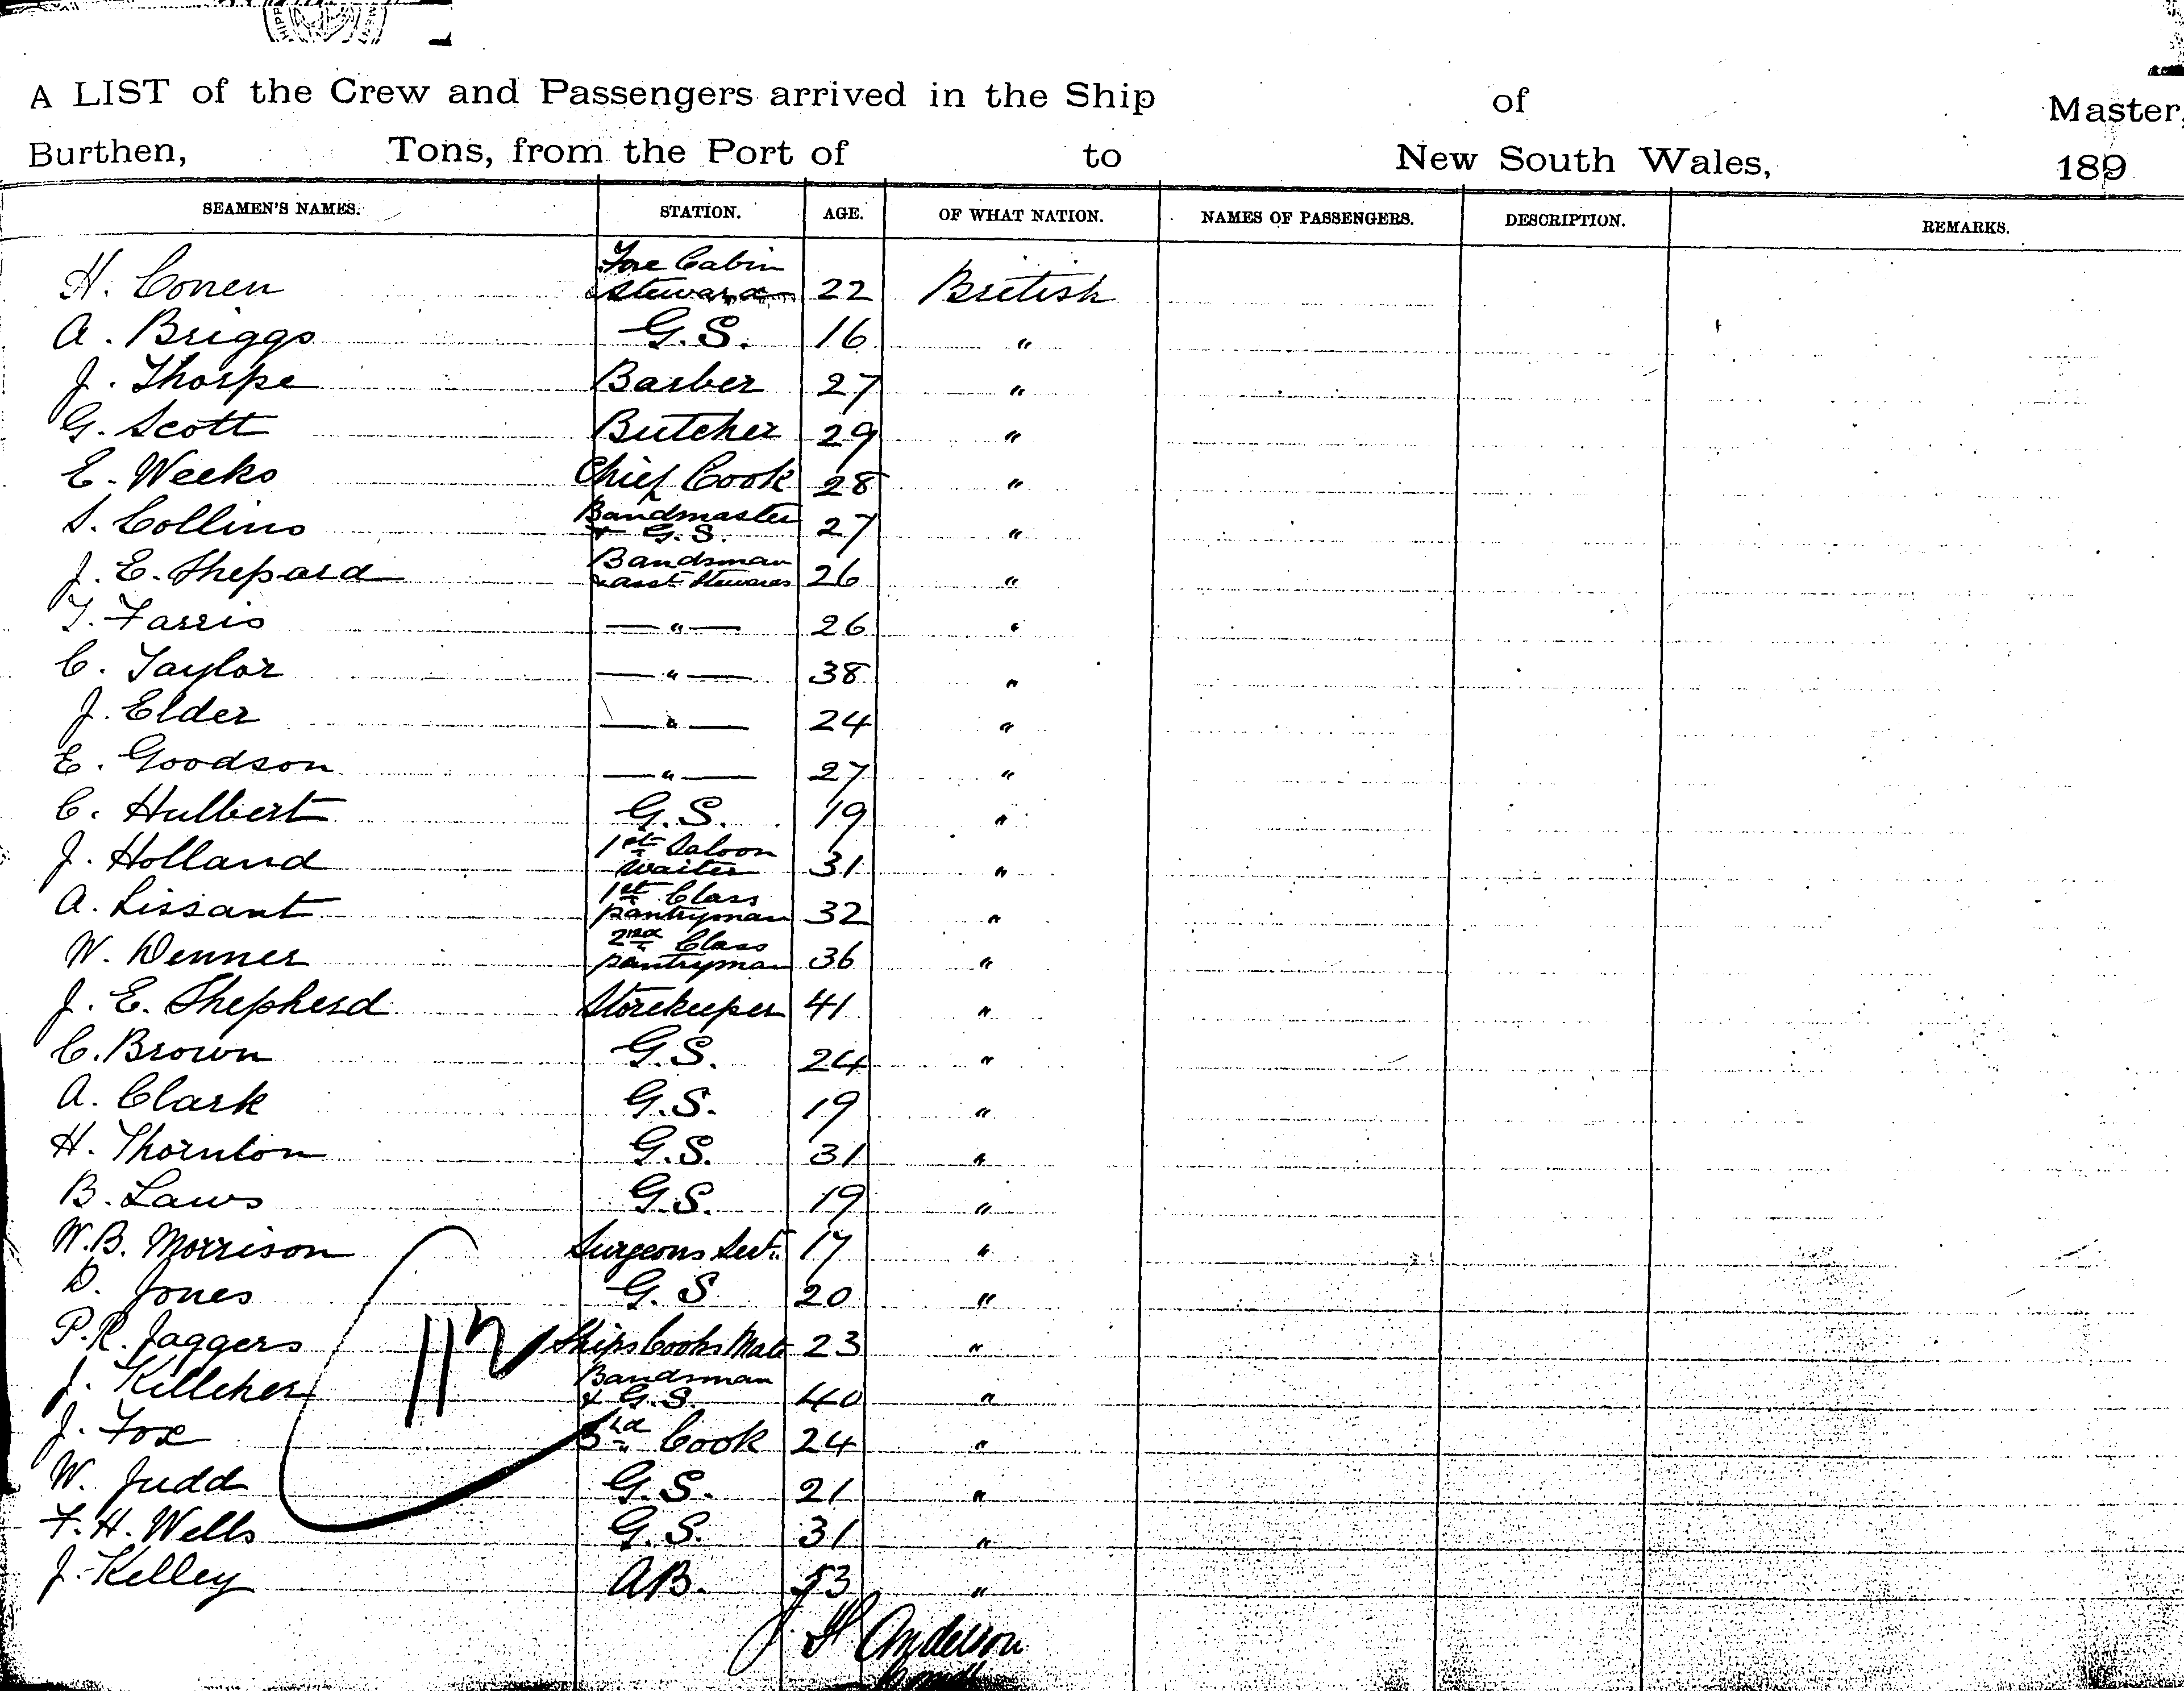 A LIST of the Crew and Passengers arrived in the Ship of Master,
Burthen, Tons, from the Port of to New South Wales, 189
SEAMEN'S NAMES. STATION. AGE. OF WHAT NATION. NAMES OF PASSENGERS. DESCRIPTION. REMARKS.
H. Conen Fore Cabin Steward 22 British
A. Briggs G.S. 16 "
J. Thorpe Barber 27 "
G. Scott Butcher 29 "
E. Weeks Chief Cook 28 "
S. Collins Bandmaster & G.S. 27 "
J. E. Shepard Bandsman & asst Stewards 26 "
T. Farris — " — 26 "
C. Taylor — " — 38 "
J. Elder — " — 24 "
E. Goodson — " — 27 "
C. Hulbert G.S. 19 "
J. Holland 1st Saloon Waiter 31 "
A. Lissant 1st Class pantryman 32 "
W. Denner 2nd Class pantryman 36 "
J. E. Shepherd Storekeeper 41 "
C. Brown G.S. 24 "
A. Clark G.S. 19 "
H. Thornton G.S. 31 "
B. Laws G.S. 19 "
W. B. Morrison Surgeons Servt. 17 "
D. Jones G.S 20 "
P. R. Jaggers Ships Cooks Mate 23 "
J. Killeher Bandsman & G.S. 40 "
J. Fox 3rd Cook 24 "
W. Judd G.S. 21 "
F. H. Wells G.S. 31 "
J. Kelley AB. 53 "
J. H Anderson